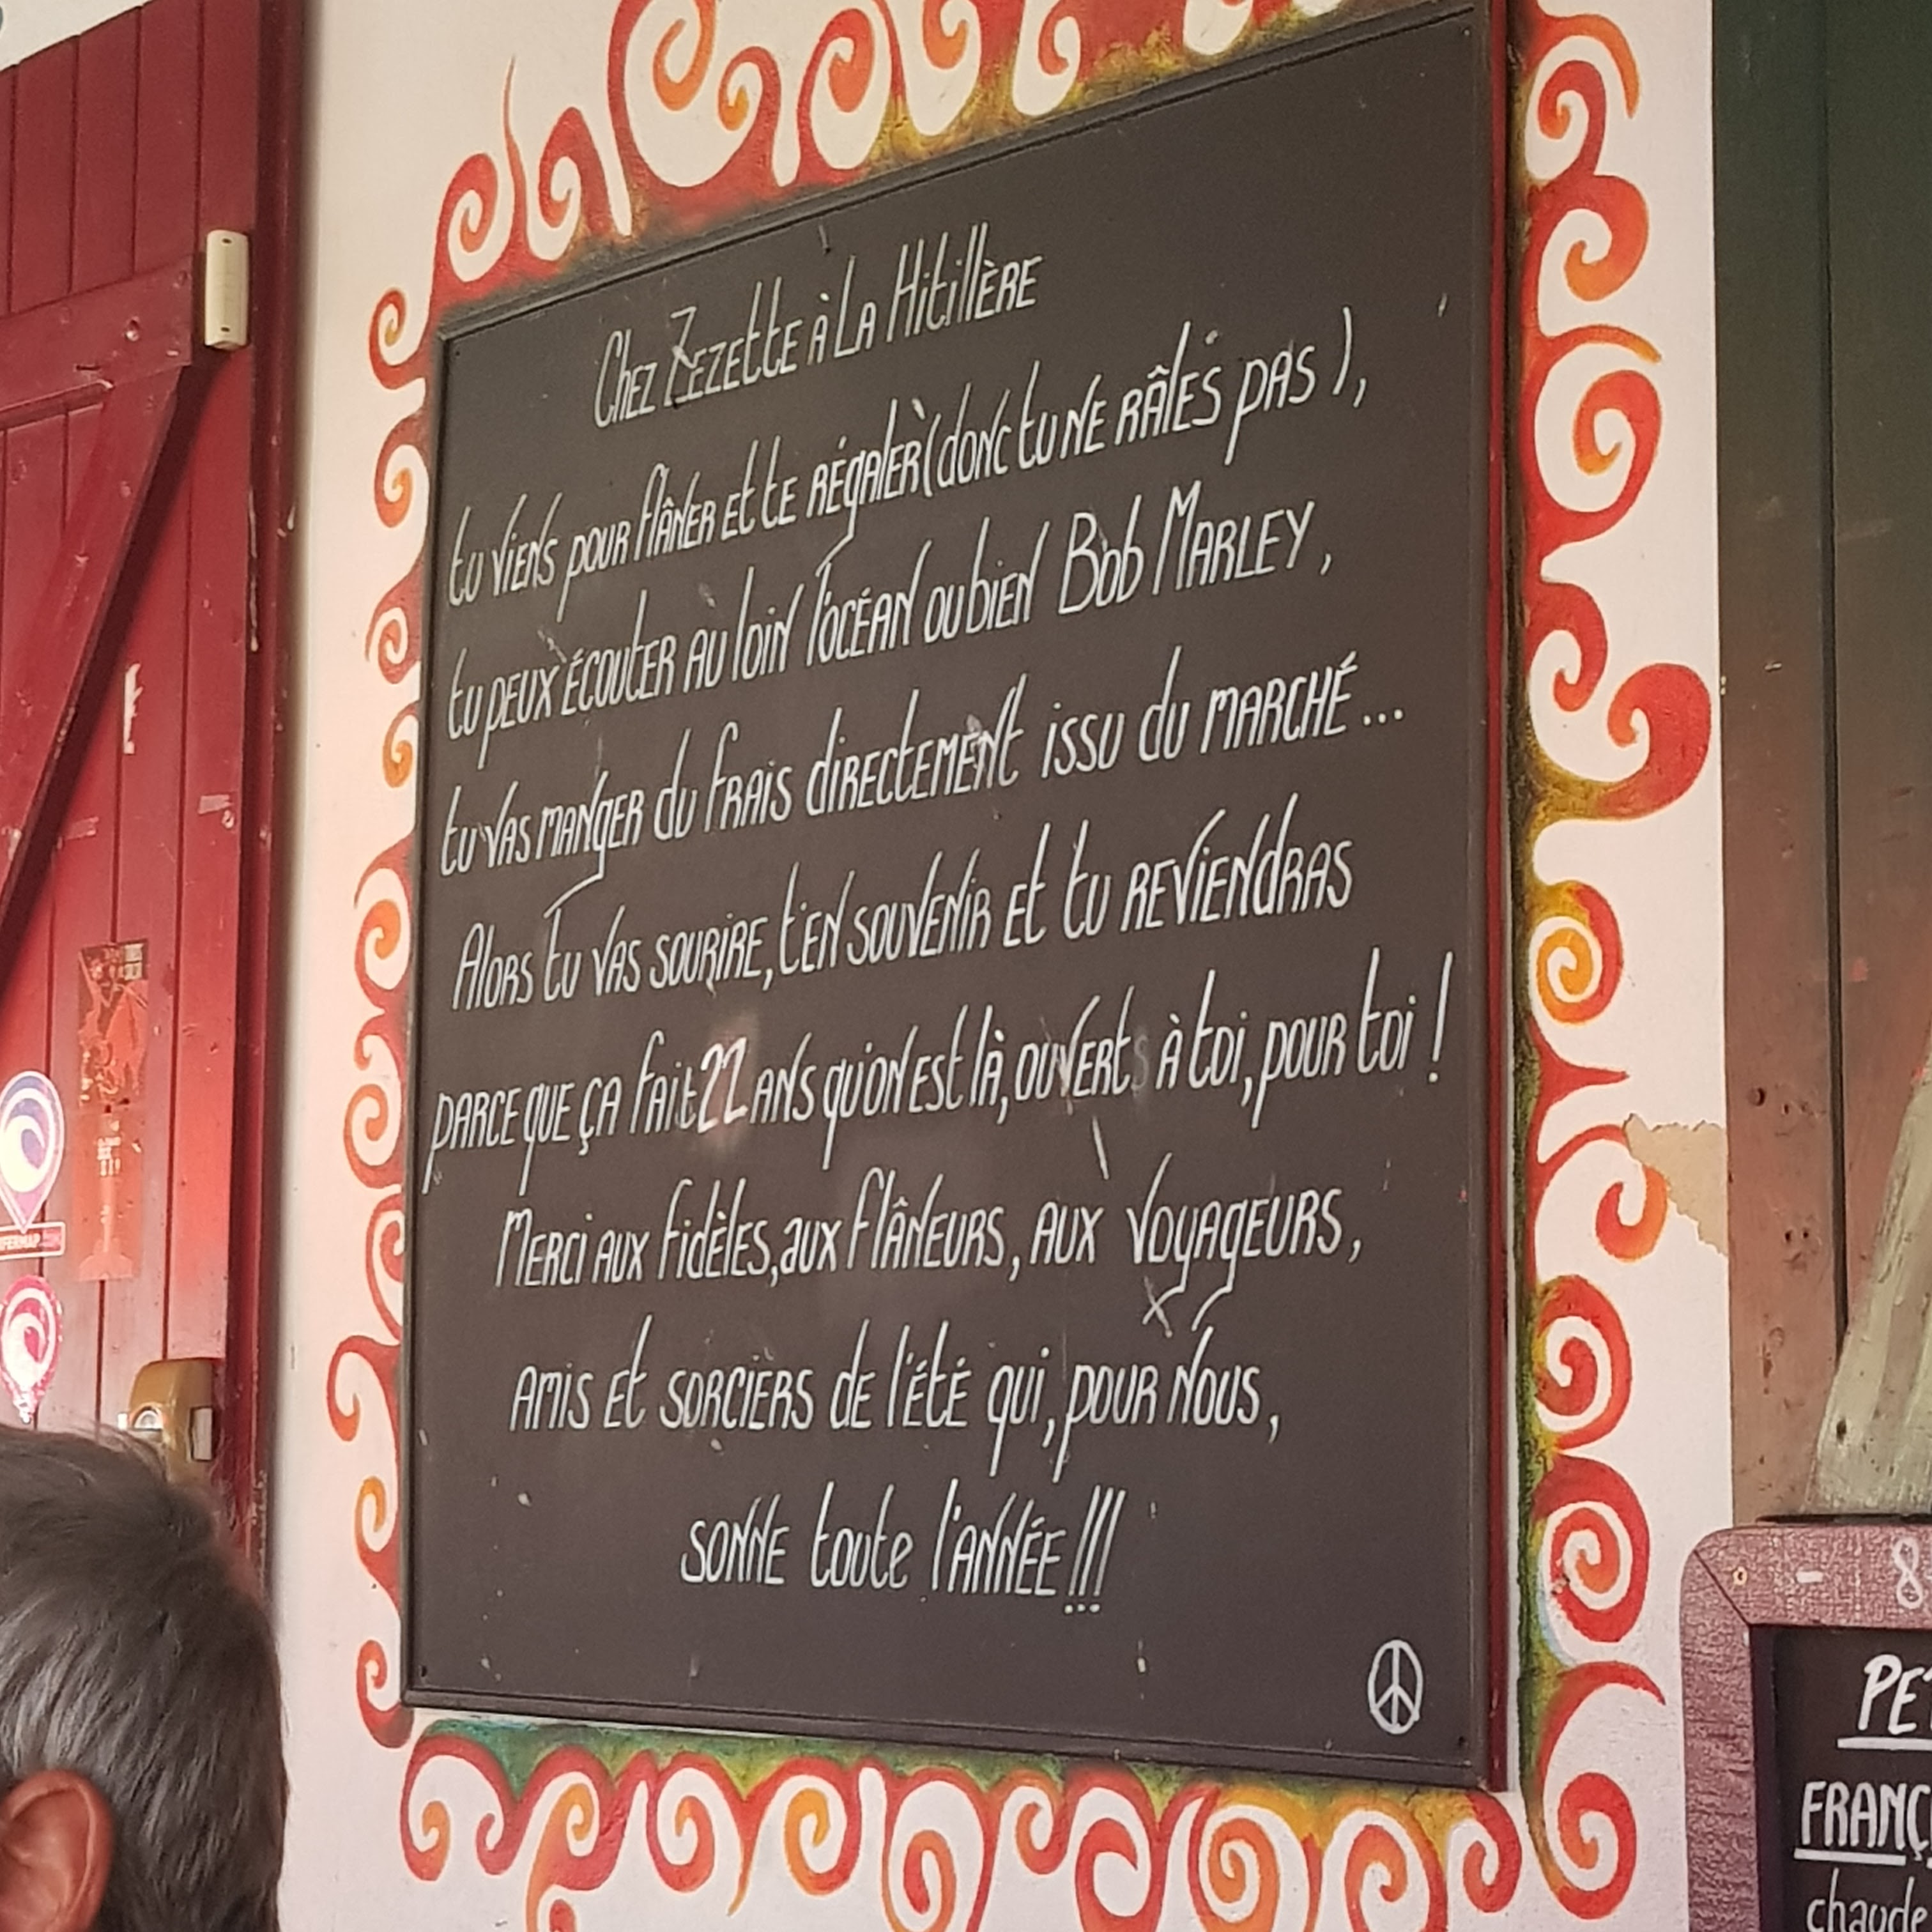 Chez Zezette à la Hitillère
tu viens pour flâner et te régaler (donc tu ne râles pas),
tu peux écouter au loin l'océan ou bien Bob Marley,
tu vas manger du frais directement issu du marché...
Alors tu vas sourire, t'en souvenir et tu reviendras
parce que ça fait 22 ans qu'on est là, ouverts à toi, pour toi !
Merci aux fidèles, aux flâneurs, aux voyageurs,
amis et sorciers de l'été qui, pour nous,
sonne toute l'année !!!
- 8
PE
FRANÇ
chaude